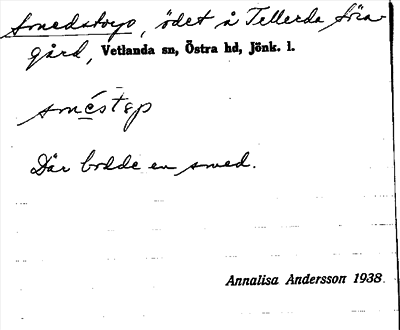 Smedstorp, ödet å Tellerda Söra-
gård, Vetlanda sn, Östra hd, Jönk. l.
sméstɐp
Där bodde en smed.
Annalisa Andersson 1938.